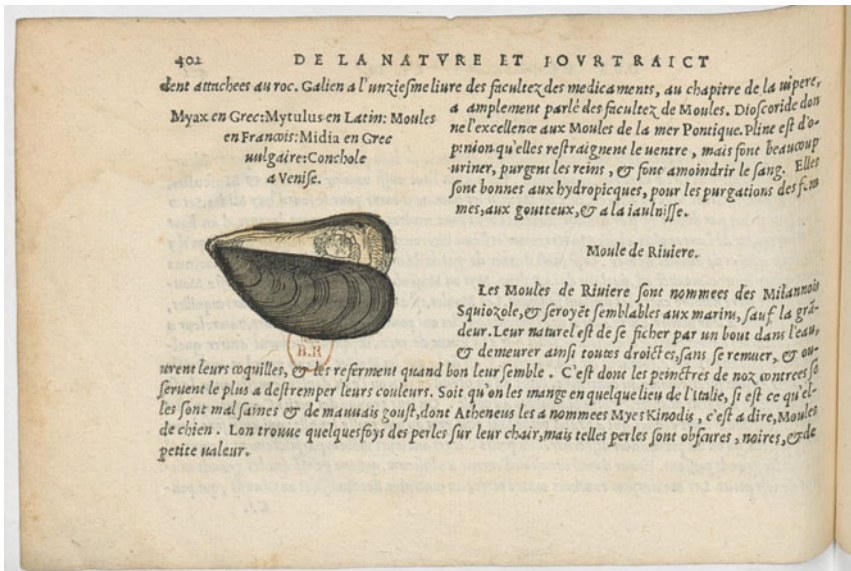 402 DE LA NATVRE ET POVRTRAICT
dent attachees au roc. Galien a l'unziesme liure des facultez des medicaments, au chapitre de la uipere,
a amplement parlé des facultez de Moules. Dioscoride don
ne l'excellence aux Moules de la mer Pontique. Pline est d'o-
pinion qu'elles restraignent le uentre, mais font beaucoup
uriner, purgent les reins, & font amoindrir le sang. Elles
sont bonnes aux hydropicques, pour les purgations des fem
mes, aux goutteux, & a la iaulnisse.
Myax en Grec: Mytulus en Latin: Moules
en Francois: Midia en Grec
uulgaire: Conchole
a Venise.
B.R
Moule de Riuiere.
Les Moules de Riuiere sont nommees des Milannois
Squiozole, & seroyẽt semblables aux marins, sauf la grã-
deur. Leur naturel est de se ficher par un bout dans l'eau,
& demeurer ainsi toutes droictes, sans se remuer, & ou-
urent leurs coquilles, & les referment quand bon leur semble. C'est dont les peinctres de noz contrees se
seruent le plus a destremper leurs couleurs. Soit qu'on les mange en quelque lieu de l'Italie, si est ce qu'el-
les sont mal saines & de mauuais goust, dont Atheneus les a nommees Myes Kinodis, c'est a dire, Moules
de chien. Lon trouue quelquesfoys des perles sur leur chair, mais telles perles sont obscures, noires, & de
petite ualeur.